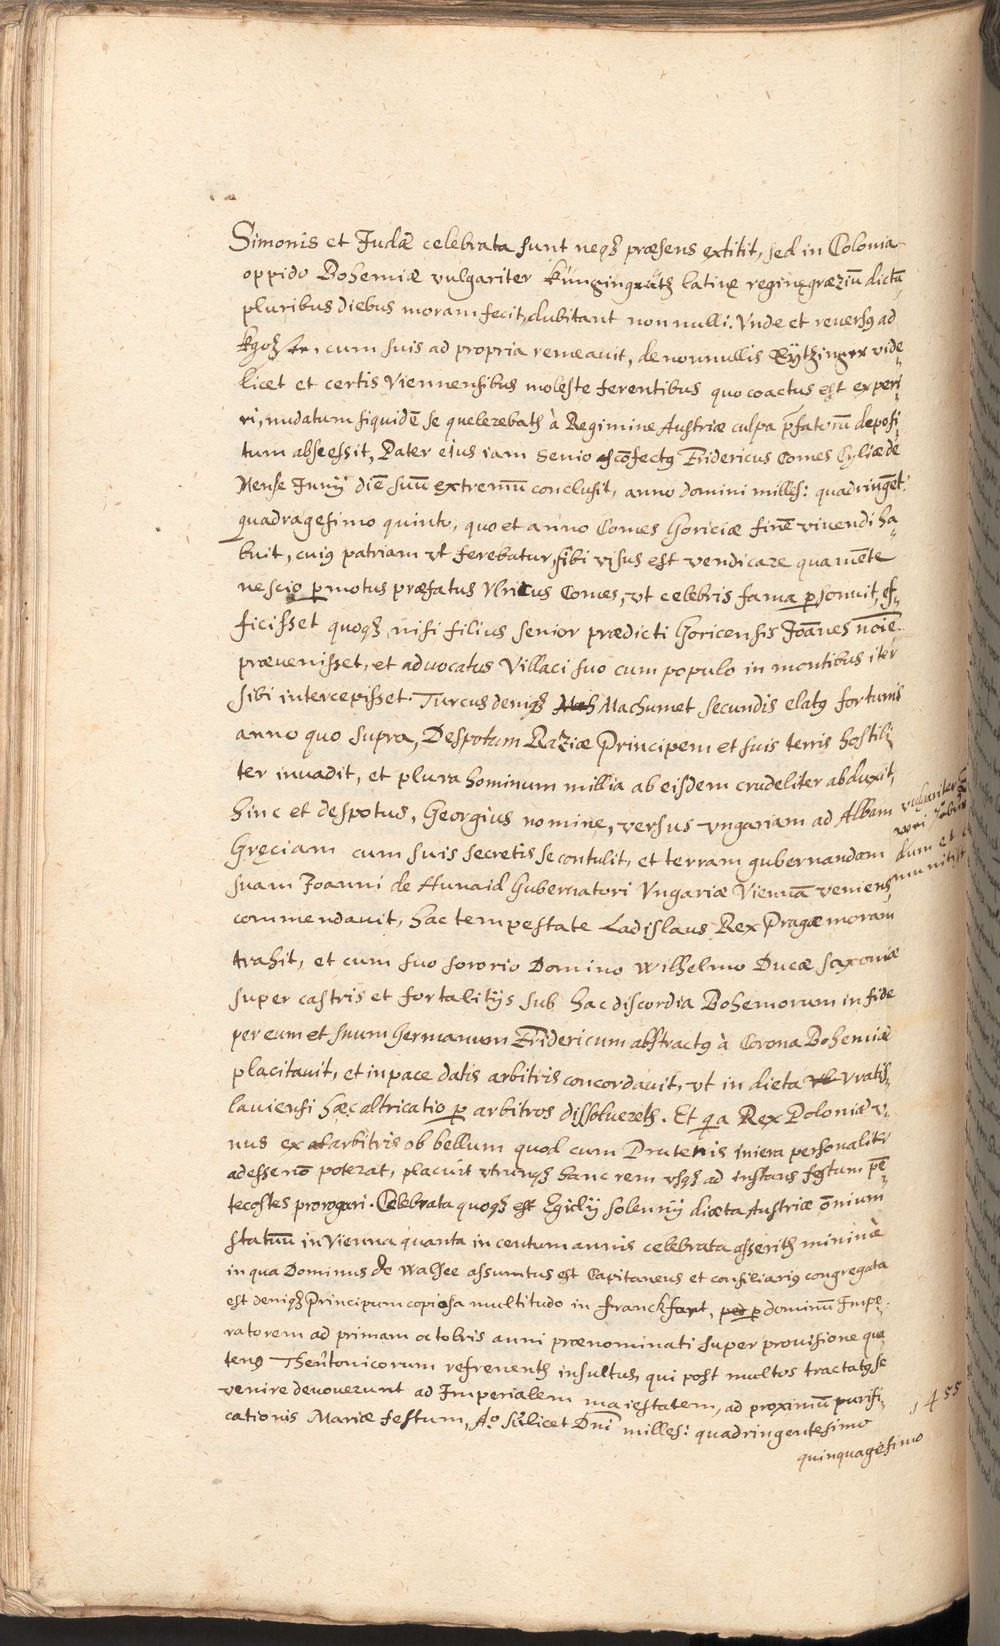 Simonis et Judæ celebrata sunt neqꝫ præsens extitit, sed in Colonia
oppido Bohemiæ vulgariter Küngingrätz latine reginęgræziū dictū
pluribus diebus moram fecit, dubitant nonnulli. Vnde et reversꝯ ad
cum suis ad propria remeavit, de nonnullis Eÿtzinger vide„
licet et certis Viennensibus moleste ferentibus quo coactus est experi„
ri, nudatum siquidē se querebatꝫ à Regimine Austriæ culpa p̄fatorū deposi„
tum abscessit, Pater eius iam senio cōfectꝯ Fridericus Comes Cyliæ de
Mense Junij diē suū extremū conclusit, anno domini milless: quadringēt:
quadragesimo quinto, quo et anno Comes Goriciæ finē vivendi ha„
buit, cuiꝯ patriam vt ferebatur, sibi visus est vendicare qua mēte
nescio ꝑmotus præfatus Vlricus Comes, vt celebris fama ꝑsonuit, ef„
ficisset quoqꝫ nisi filius senior prædicti Goricensis Joānes nōīe
prævenisset, et advocatus Villaci suo cum populo in montibus iter
sibi intercepisset. Turcus deniqꝫ Mah Machumet secundis elatꝯ fortunis
anno quo supra, Despotum Raziæ Principem et suis terris hostili„
ter invadit, et plura hominum millia ab eisdem crudeliter abduxit,
hinc et despotus, Georgius nomine, versus vngariam ad Albam vulgariter
Gręciam cum suis secretis se contulit, et terram gubernandam dum et
suam Joanni de Hunaid Gubernatori Vngariæ Viennā veniens
commendavit, hac tempestate Ladislaus Rex Pragæ moram
trahit, et cum suo sororio Domino Wilhelmo Ducæ saxoniæ
super castris et fortalitijs sub hac discordia Bohemorum in fide
per eum et suum Germanum Fridericum abstractꝯ à Corona Bohemiæ
placitavit, et in pace datis arbitris concordavit, vt in dieta Vratis„
laviensi hæc altricatio ꝑ arbitros dissolueretꝫ. Et qa Rex Poloniæ v„
nus ex arbitris ob bellum quod cum Prutenis inierа personaliter
adesse nō poterat, placuit vtrungꝫ hanc rem vsqꝫ ad instans festum pē„
tecostes prorogari. Celebrata quoqꝫ est Egidij solemnij diæta Austriæ ōnium
statuū in Vienna quanta in centum annis celebrata asseritꝫ minimè
in qua Dominus de Walsee assumtus est Capitaneus et consiliariꝯ congregata
est deniqꝫ Principum copiosa multitudo in franckfurt, ꝑ dominū Impe„
ratorem ad primam octobris anni prænominati super provisione qua
tenꝯ Theutonicorum refrenentꝫ insultus, qui post multos tractatꝯ se
venire devoverunt ad Imperialem maiestatem, ad proximū purifi„
cationis Mariæ festum, Aº scilicet Dn̄i milless: quadringentesimo
quinquagesimo
1455